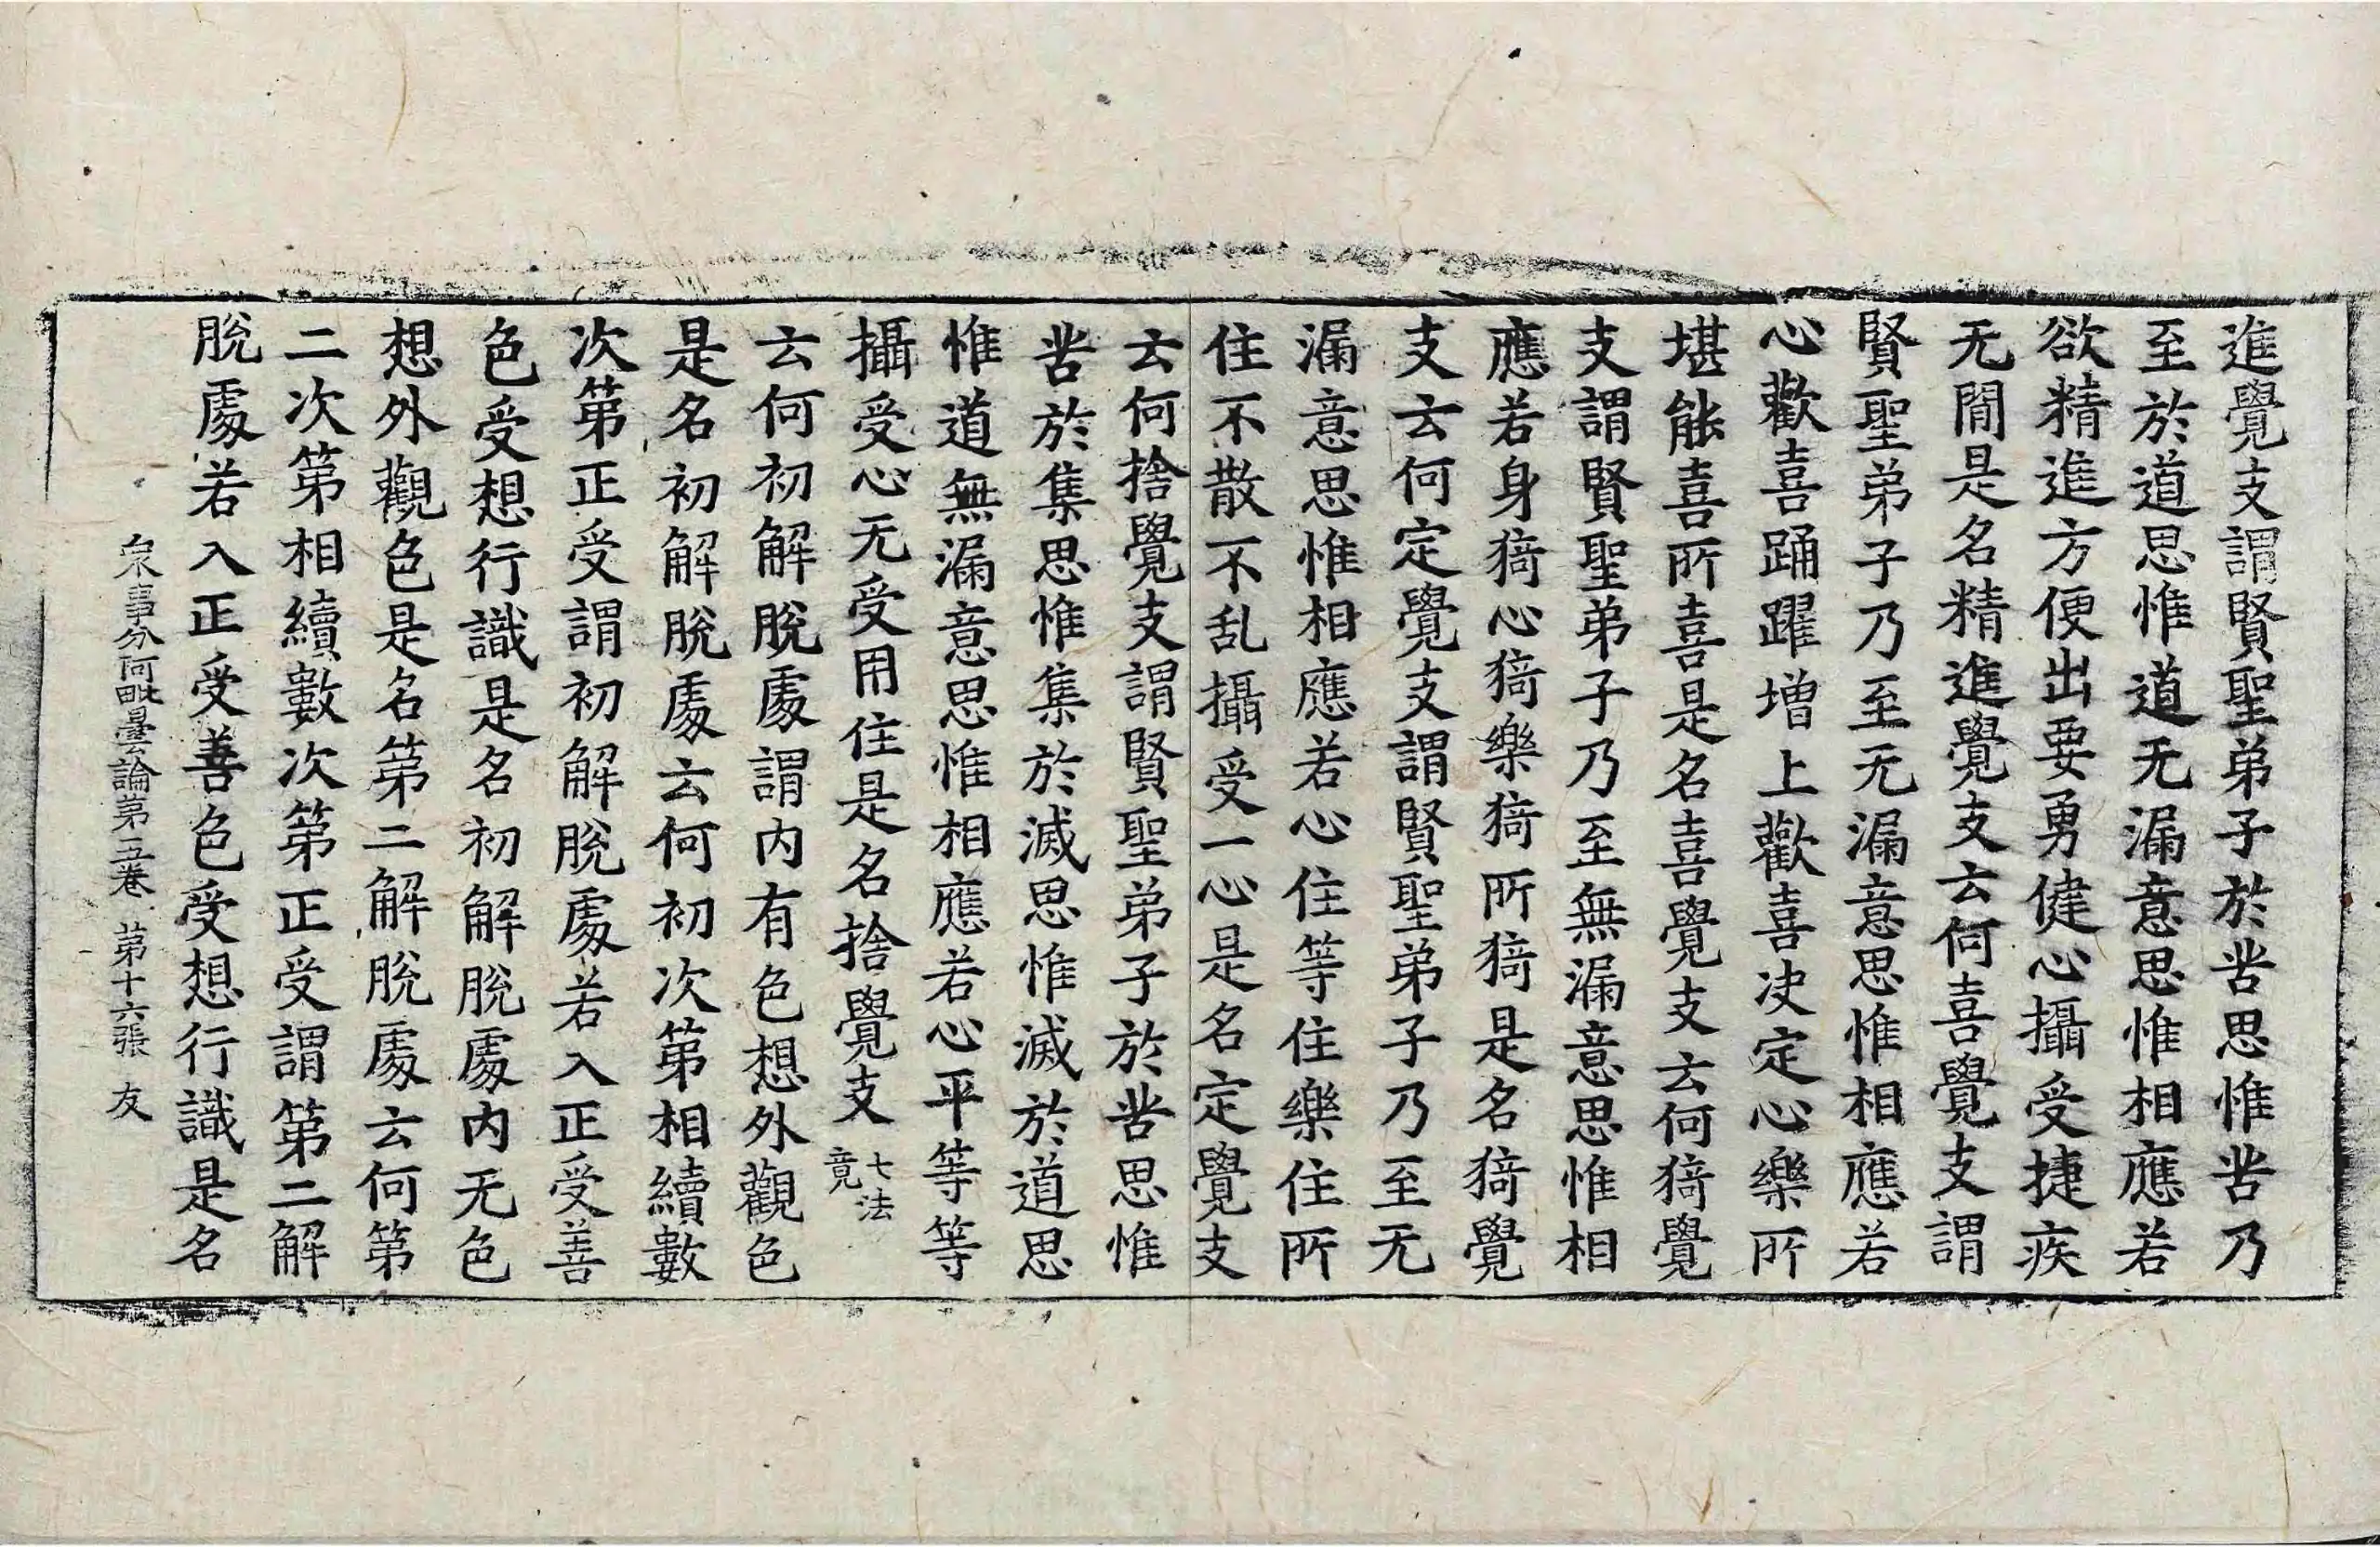 進覺支謂賢聖弟子於苦思惟苦乃
至於道思惟道无漏意思惟相應若
欲精進方便出要勇健心攝受捷疾
无閒是名精進覺支云何喜覺支謂
賢聖弟子乃至无漏意思惟相應若
心歡喜踊躍增上歡喜决定心樂所
堪能喜所喜是名喜覺支云何猗覺
支謂賢聖弟子乃至無漏意思惟相
應若身猗心猗樂猗所猗是名猗覺
支云何定覺支謂賢聖弟子乃至无
漏意思惟相應若心住等住樂住所
住不散不乱攝受一心是名定覺支
云何捨覺支謂賢聖弟子於苦思惟
苦於集思惟集於滅思惟滅於道思
惟道無漏意思惟相應若心平等等
攝受心无受用住是名捨覺支七法竟
云何初解脫處謂内有色想外觀色
是名初解脫處云何初次第相續數
次第正受謂初解脫處若入正受善
色受想行識是名初解脫處内无色
想外觀色是名第二解脫處云何第
二次第相續數次第正受謂第二解
脫處若入正受善色受想行識是名
衆事分阿毗曇論第五卷 第十六張 友